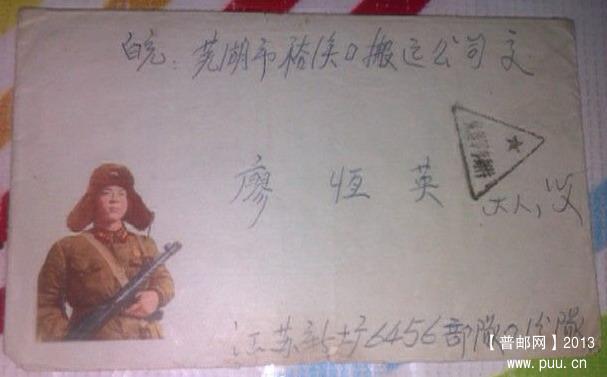 皖：芜湖市裕溪口搬运公司交
廖恒英
大人 收
江苏新坊6456部队 分队
【普邮网】2013
www.puu.cn